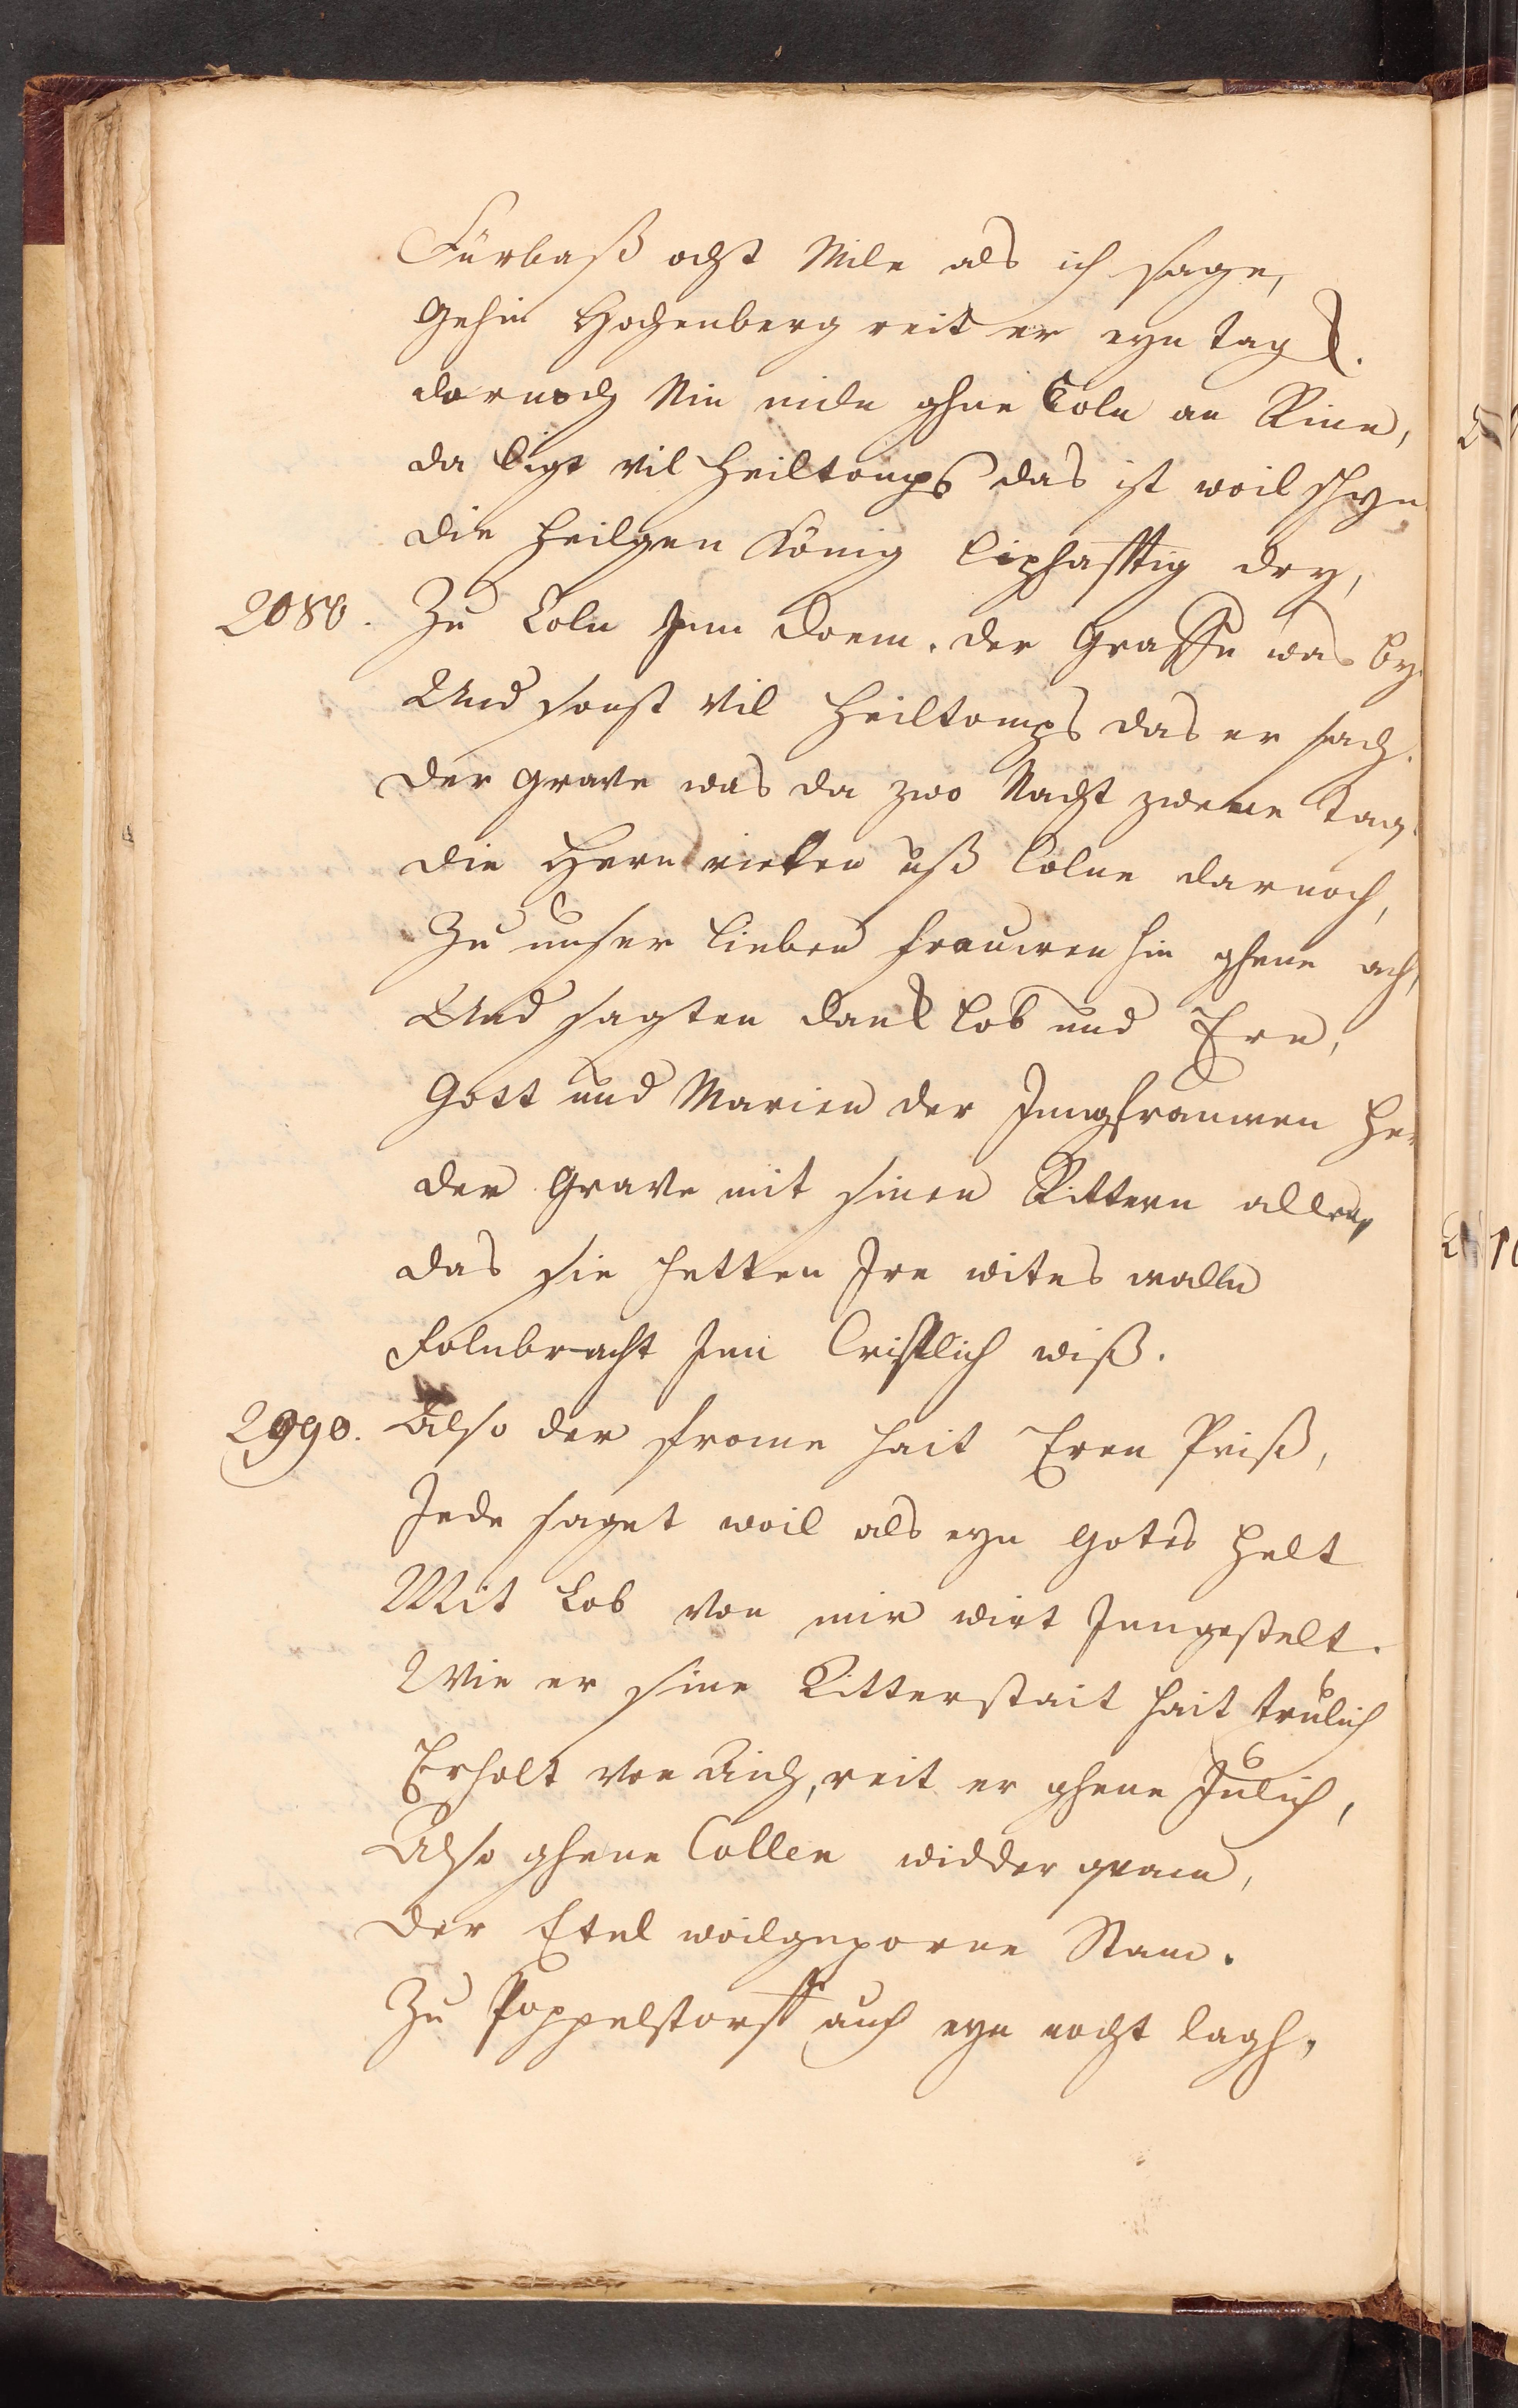 Fürbaß acht Mile als ich sage,
Gehin Hochenberg reit er eyn tag.
darnoch Nin mile ghne Coln an Rine,
da ligt vil heiltomps das ist woil schyn
die heilgen König liphafftig dry,
2080. Zu Coln Inn doem. der Graffe was by
Und sonst vil heiltomps das er sach.
der grave was da zwo Nacht zwene Tag
die Hern rieten uß Colne darnoch,
Zu unser lieben frauwen hin ghene ach,
Und sagten dank lob und Ere,
Gott und Marien der Jungfrauwen her
der Grave mit sinen Rittern allen,
das sie hetten Ire wites walln
folnbracht Inn Cristlich wiß.
2990. Also der frome hait Eren Priß,
Jede saget woil als eyn Gotes helt
Mit Lob von mir wirt Inngestelt.
Wie er sine Ritterstait hait trulich
Erholt von Aich, reit er ghene Julich,
Also ghene Collen widder quam,
der Etel woilgeporne Stam.
Zu Poppelstorff auch eyn nacht lagh,